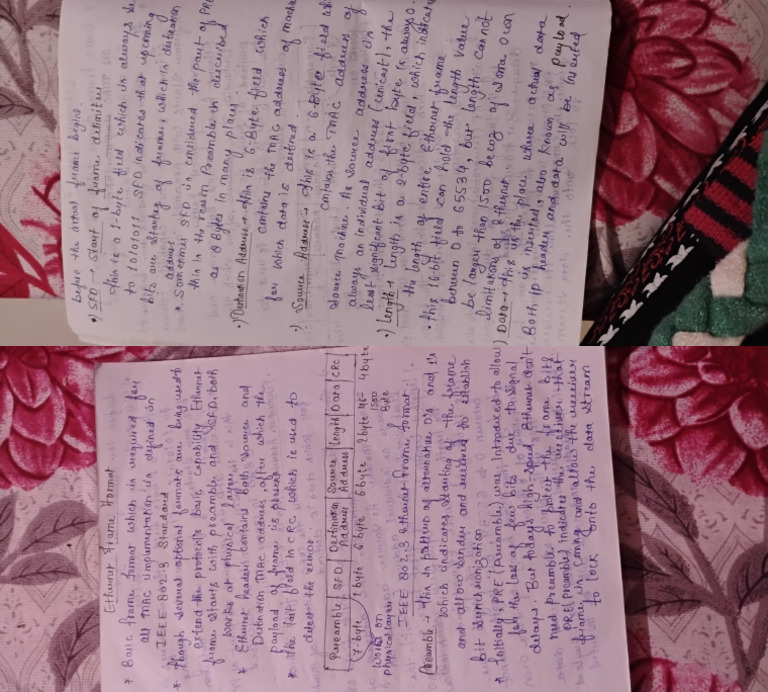 Ethernet Frame Format
* Basic frame format which is required for
all MAC implementation is defined in
IEEE 802.3 Standard
* Though several optional formats are being used to
extend the protocol's basic capability Ethernet
frame starts with preamble and SFD, both
works at physical layer
* Ethernet header contains both source and
Destination MAC address, after which the
payload of frame is present
* the last field is CRC which is used to
detect the error
Preamble | SFD | Destination Address | Source Address | Length | Data | CRC
7 byte 1 byte 6 byte 6 byte 2 byte 46- 1500 Byte 4 byte
works on
physical layer
IEEE 802.3 Ethernet Frame Format
Preamble → this is pattern of alternative 0's and 1's
which indicates starting of the frame
and allow sender and receiver to establish
bit synchronization
* Initially, PRE (Preamble) was introduced to allow
for the loss of few bits due to signal
delays. But today's high-speed Ethernet don't
need preamble to protect the frame bits
PRE (Preamble) indicates the receiver that
frame is coming and allow the receiver
to lock onto the data stream
before the actual frame begins
•) SFD → Start of frame delimiter
this is a 1-byte field which is always
to 10101011 SFD indicates that upcoming
bits are starting of frame, which is detination
address
* Sometimes SFD is considered the part of PRE
this is the reason Preamble is described
as 8 Bytes in many places.
•) Destination Address → this is 6-Byte field which
contains the MAC address of machine
for which data is destined
•) Source Address → this is a 6-Byte field
contains the MAC address of
source machine. As source address is
always an individual address (unicast), the
least significant bit of first byte is always 0.
•) Length → length is a 2-byte field, which indicates
the length of entire Ethernet frame
• this 16-bit field can hold the length value
between 0 to 65534, but length cannot
be larger than 1500 becoz of some own
limitations of Ethernet
) Data → this is the place where actual data
is inserted, also known as payload.
Both ip headers and data will be inserted